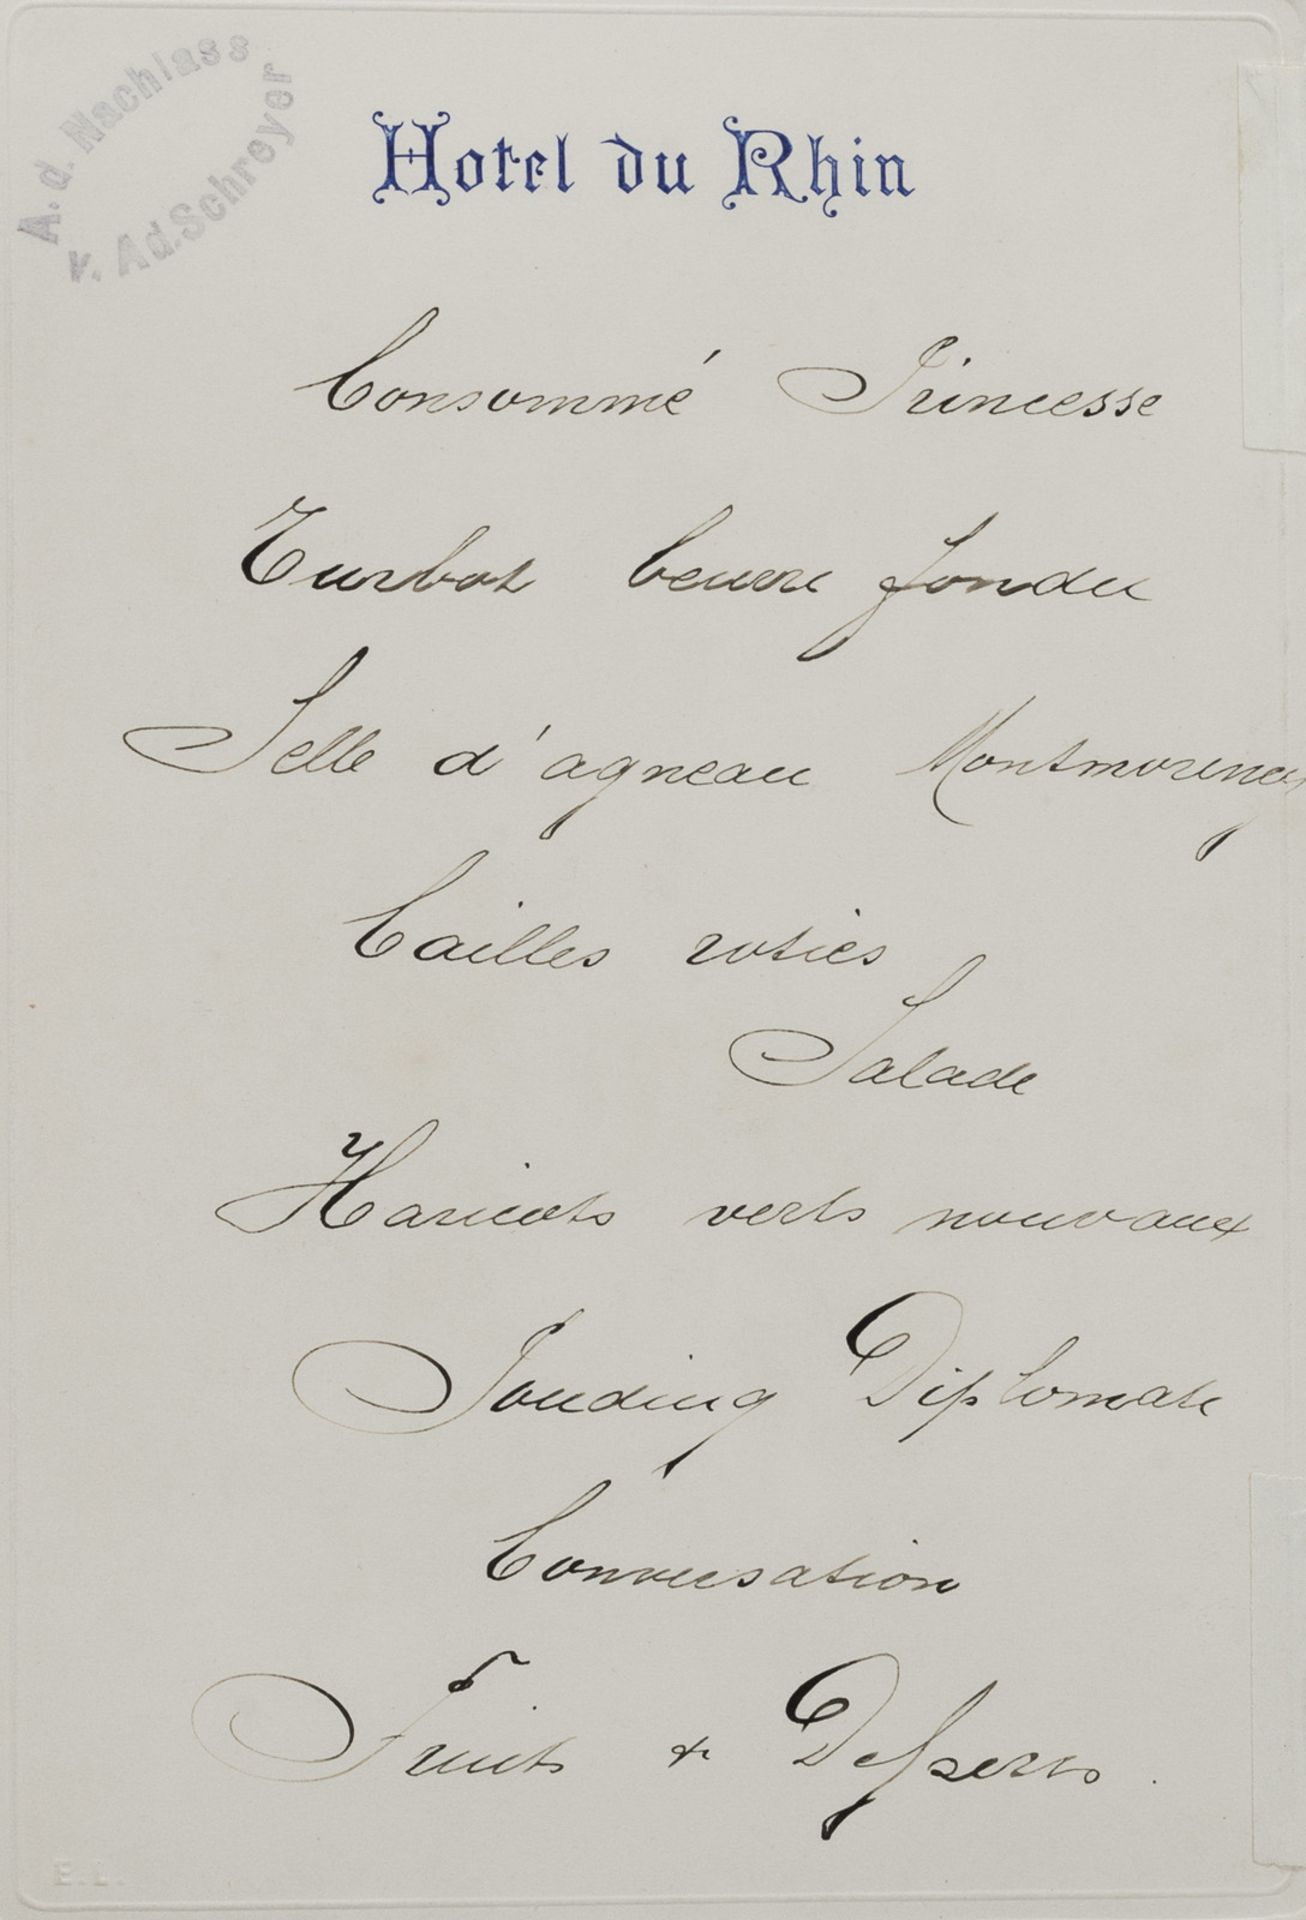 A. d. Nachlass
v. Ad. Schreyer
Hotel du Rhin
Consommé Princesse
Turbot beurre fondu
Selle d'agneau Montmorency
Cailles roties
Salade
Haricots verts nouvaux
Pouding Diplomate
Conversation
Fruits & Desserts.
E.L.